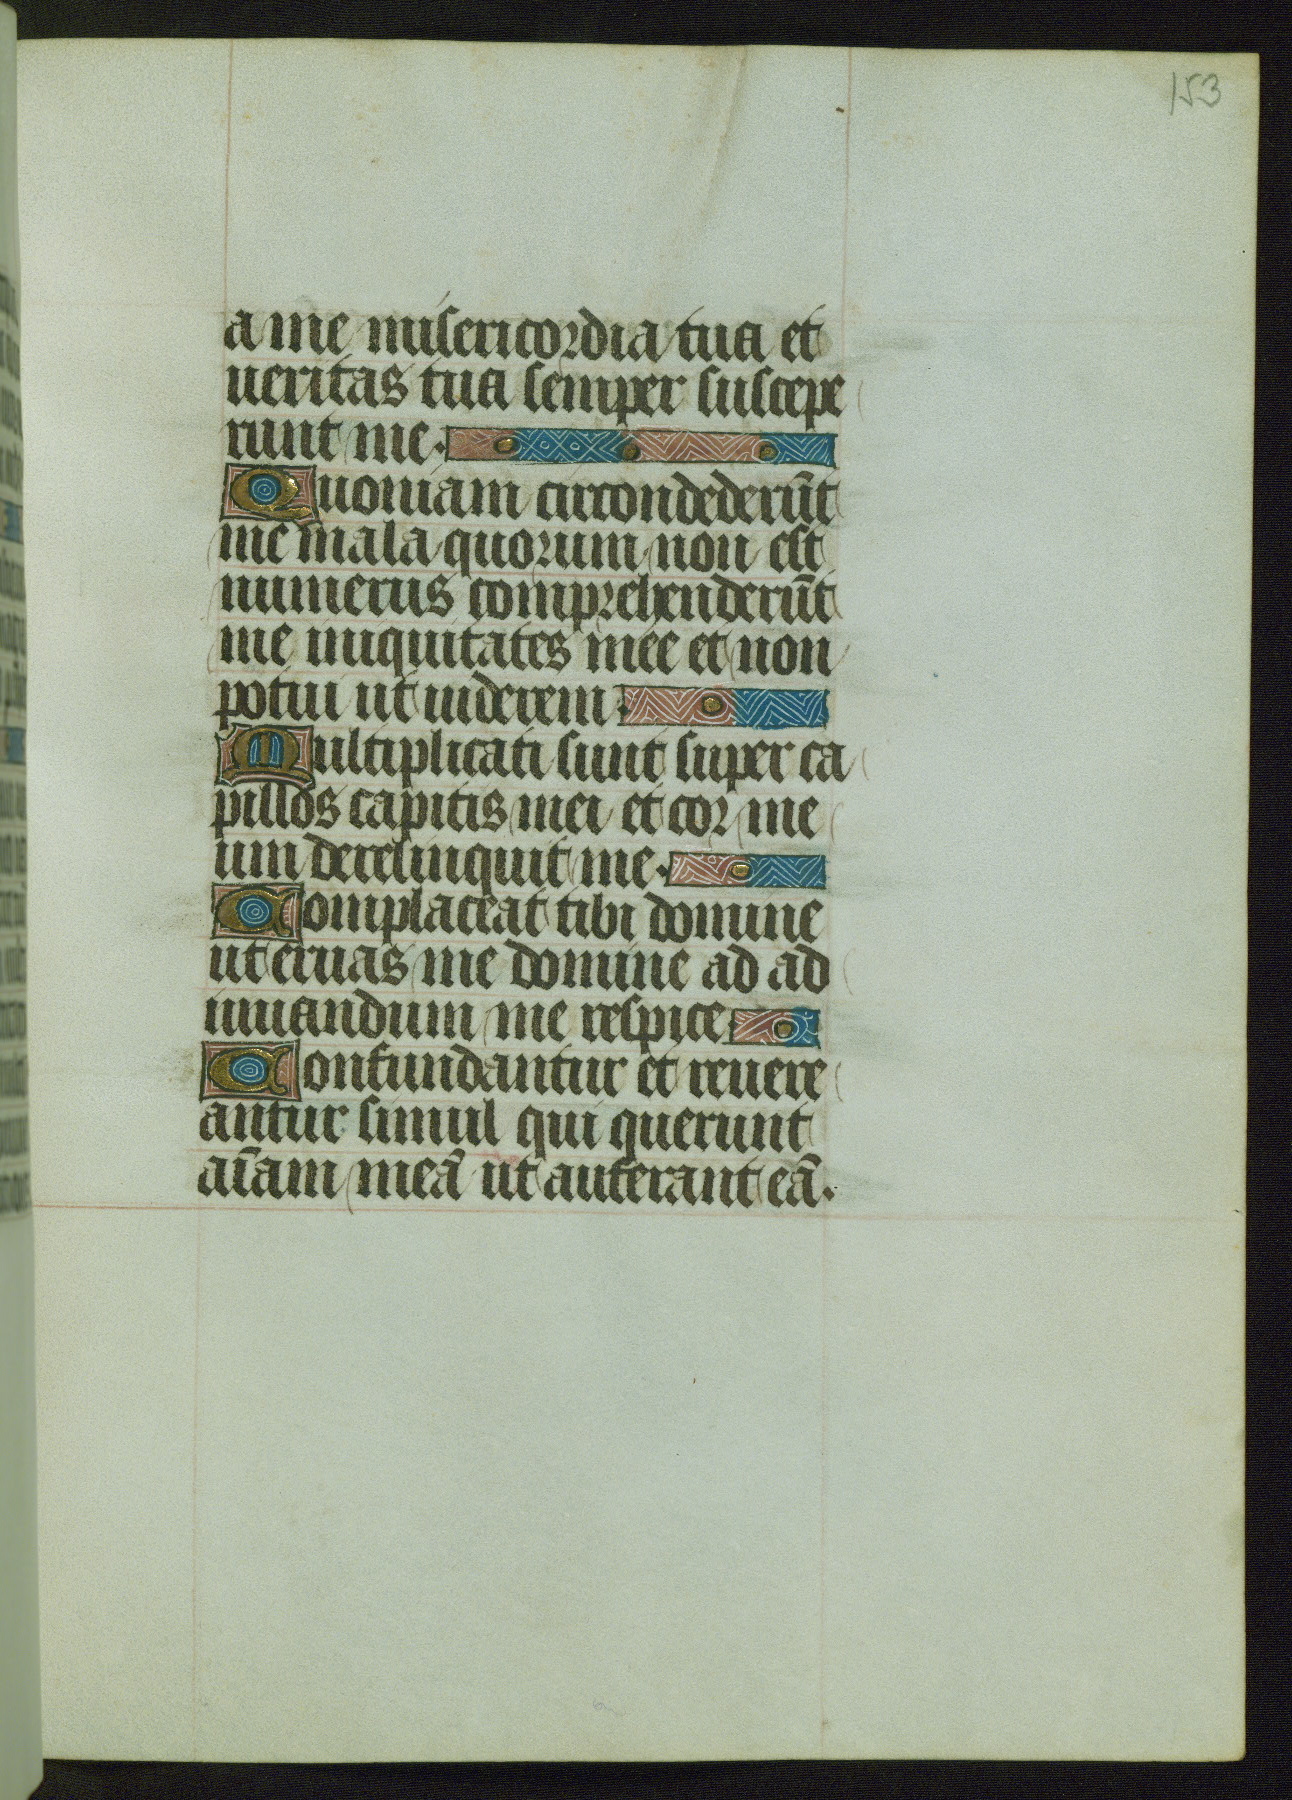 153
a me misericordia tua et
ueritas tua semper suscepe
runt me.
Quoniam circondederūt
me mala quorum non est
numerus comprehenderūt
me iniquitates mee et non
potui ut uiderem.
Multiplicati sunt super ca
pillos capitis mei et cor me
um derelinquit me.
Complaceat tibi domine
ut eruas me domine ad ad
iuuandum me respice
Confundantur et reuere
antur simul qui querunt
aīam meā ut auferant eā.